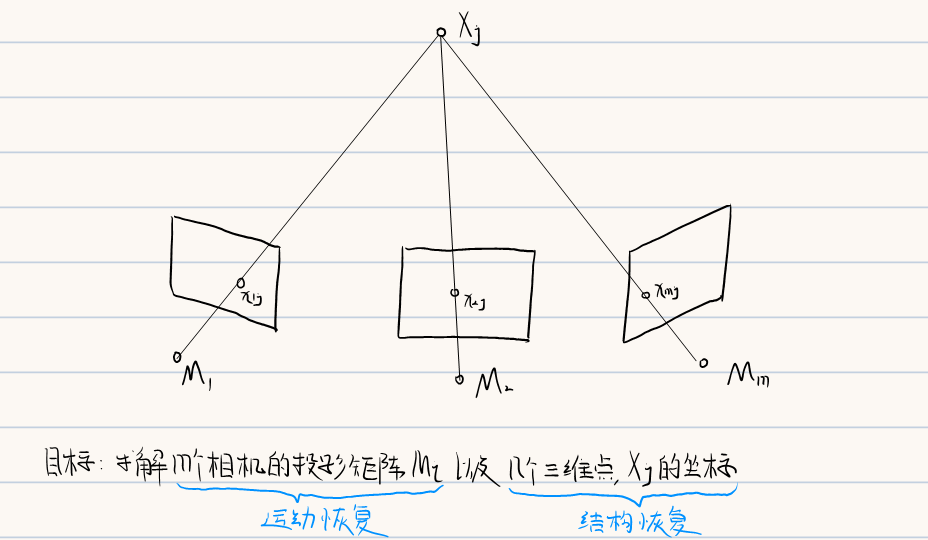 Xj
x1j
x2j
xmj
M1
M2
Mm
目标: 求解m个相机的投影矩阵Mi以及n个三维点Xj的坐标
运动恢复
结构恢复